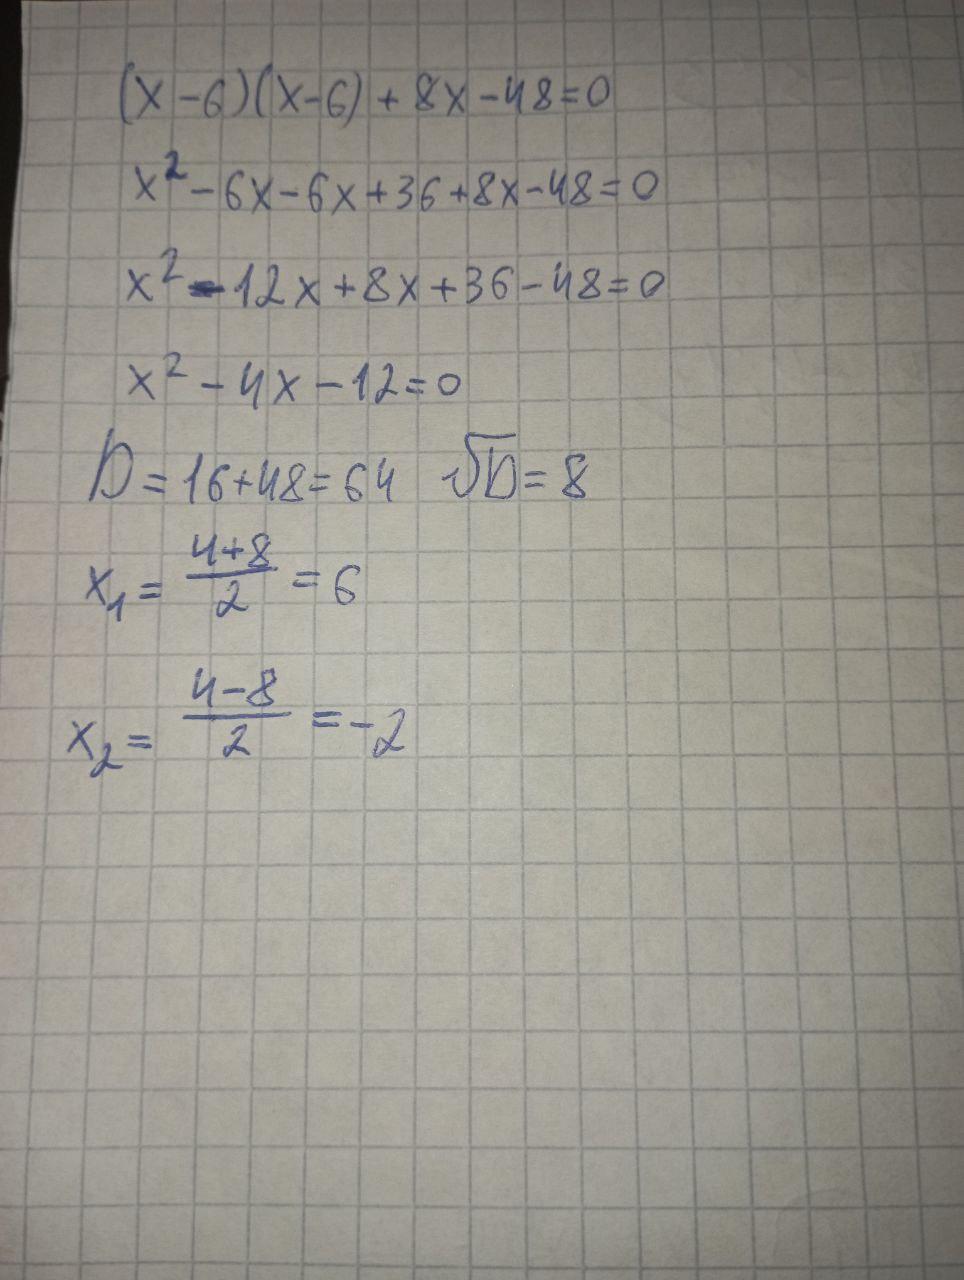 (x-6)(x-6)+8x-48=0
x²-6x-6x+36+8x-48=0
x²-12x+8x+36-48=0
x²-4x-12=0
D=16+48=64 √D=8
x₁= (4+8)/2 =6
x₂= (4-8)/2 =-2